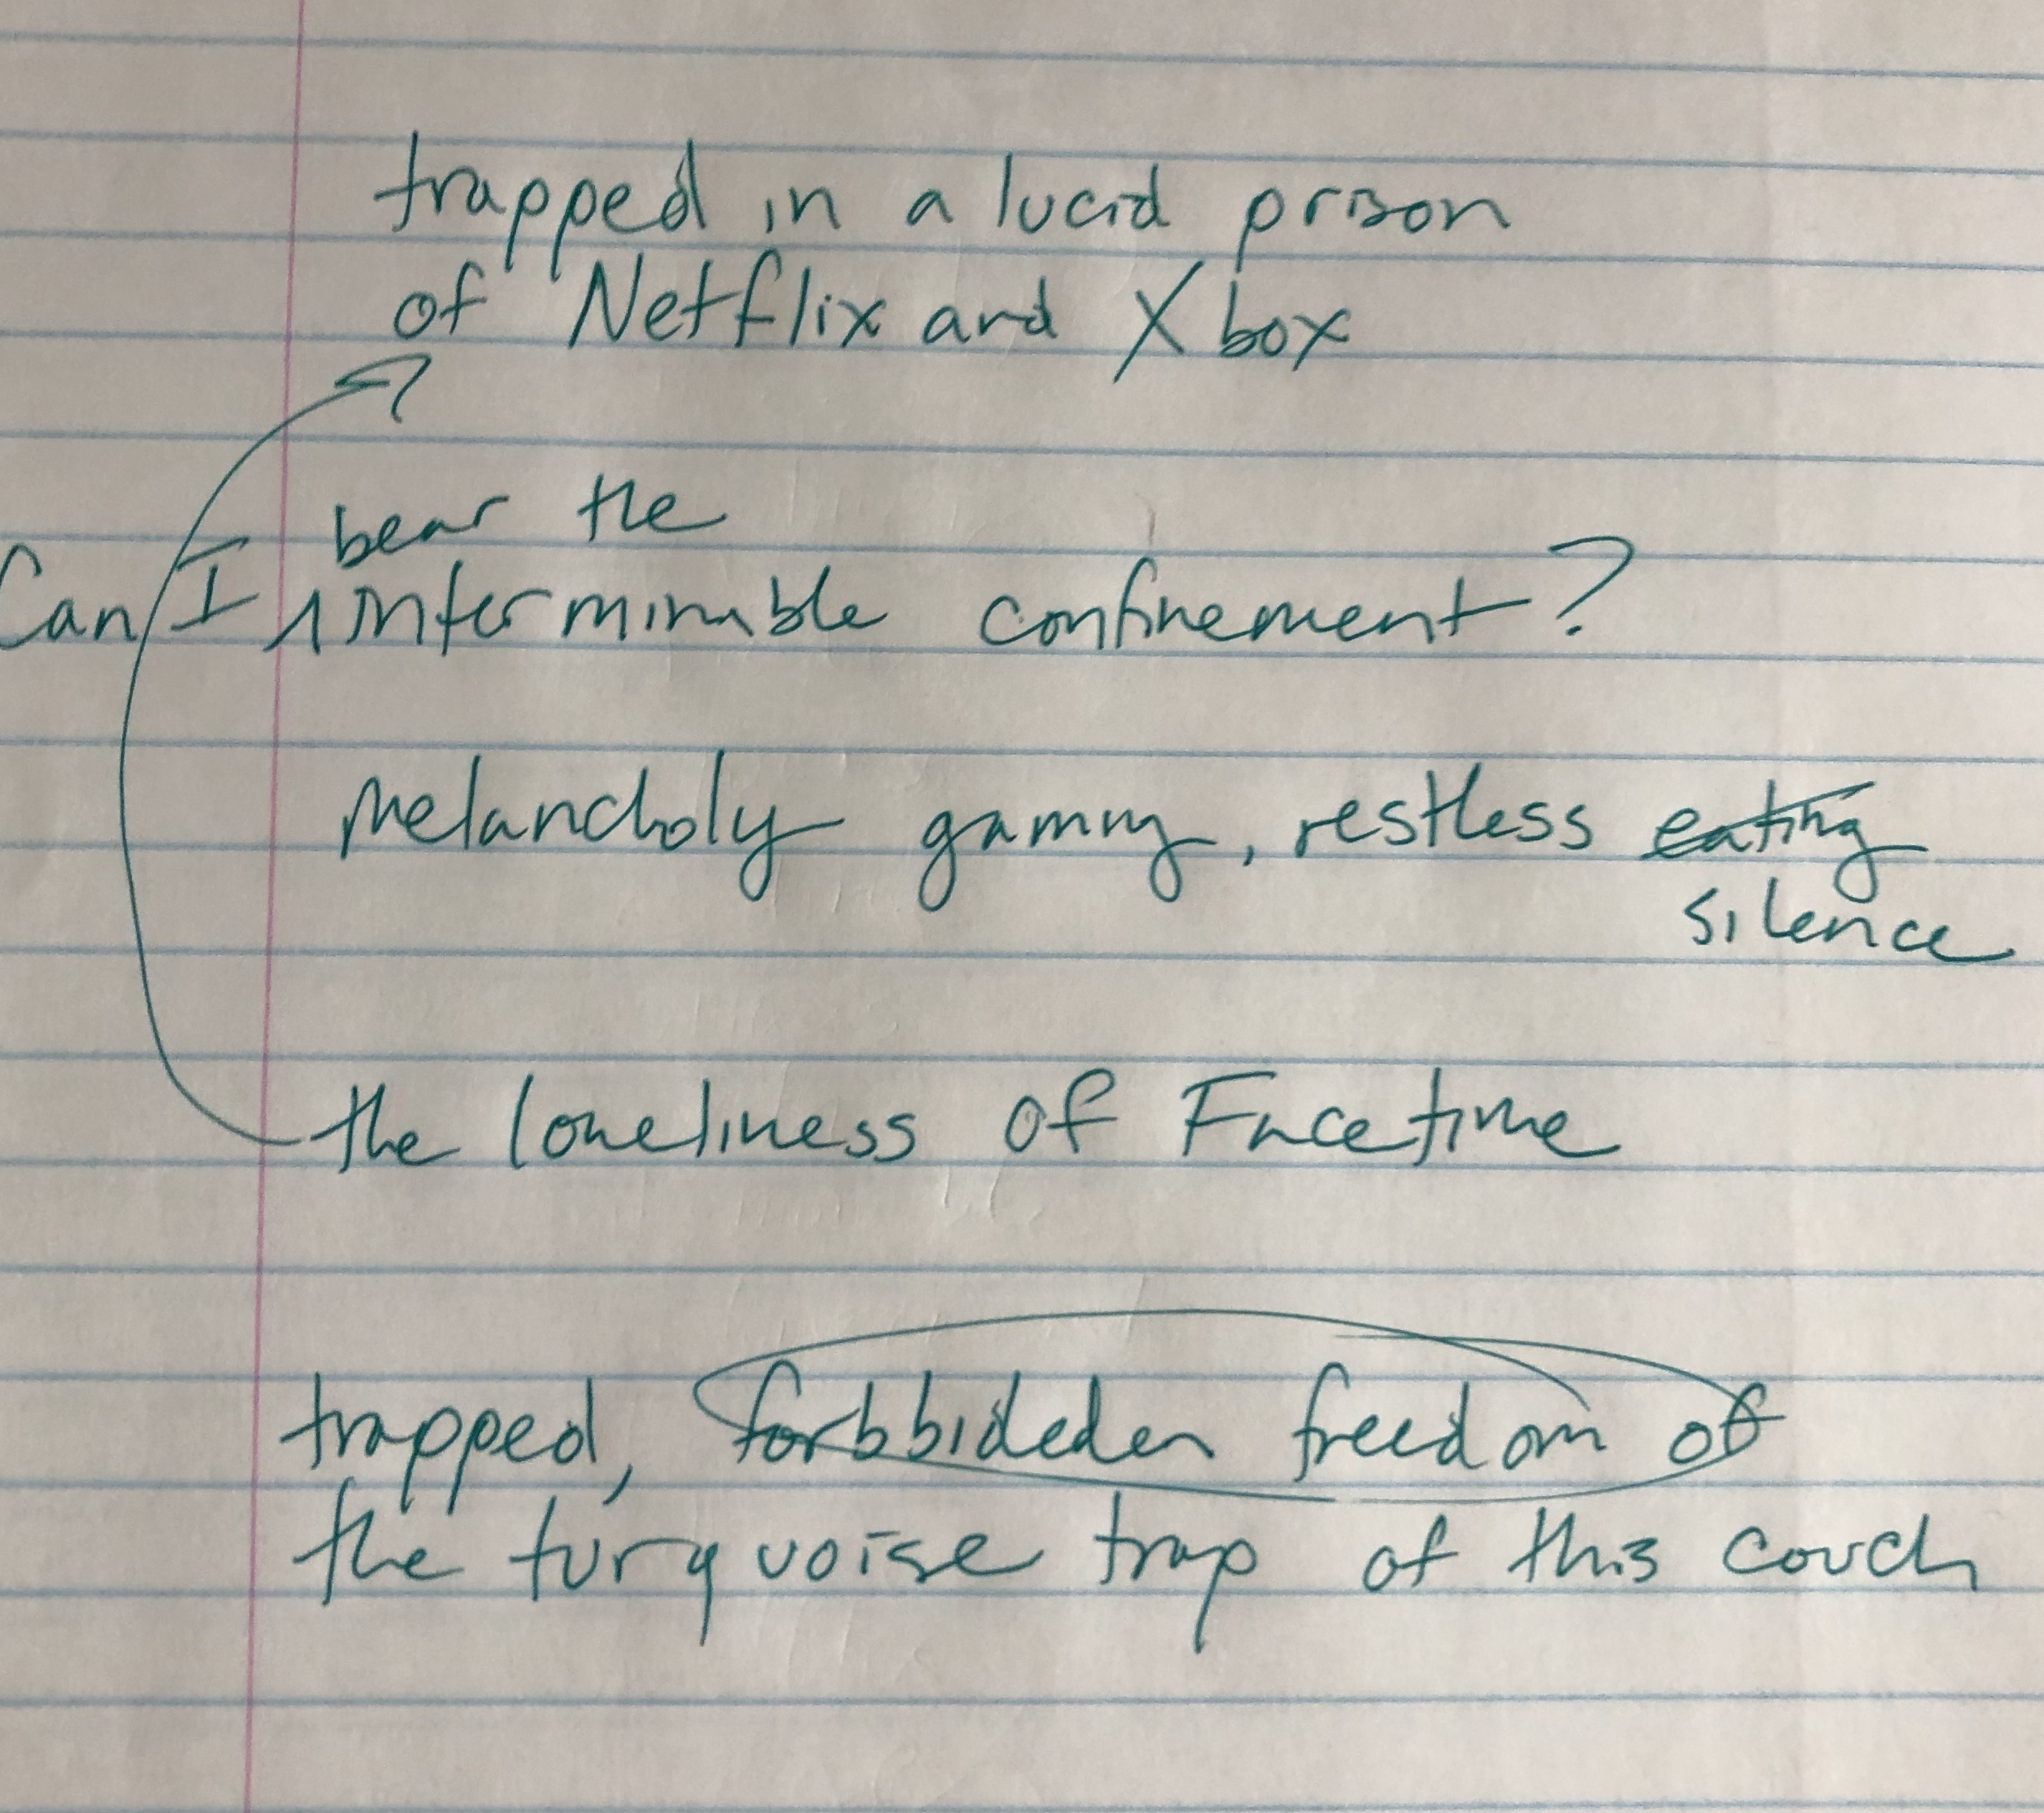 trapped in a lucid prison
of Netflix and Xbox
bear the
Can I interminable confinement?
melancholy gaming, restless eating
silence
the loneliness of Facetime
trapped, forbbideden freedom of
the turquoise trap of this couch